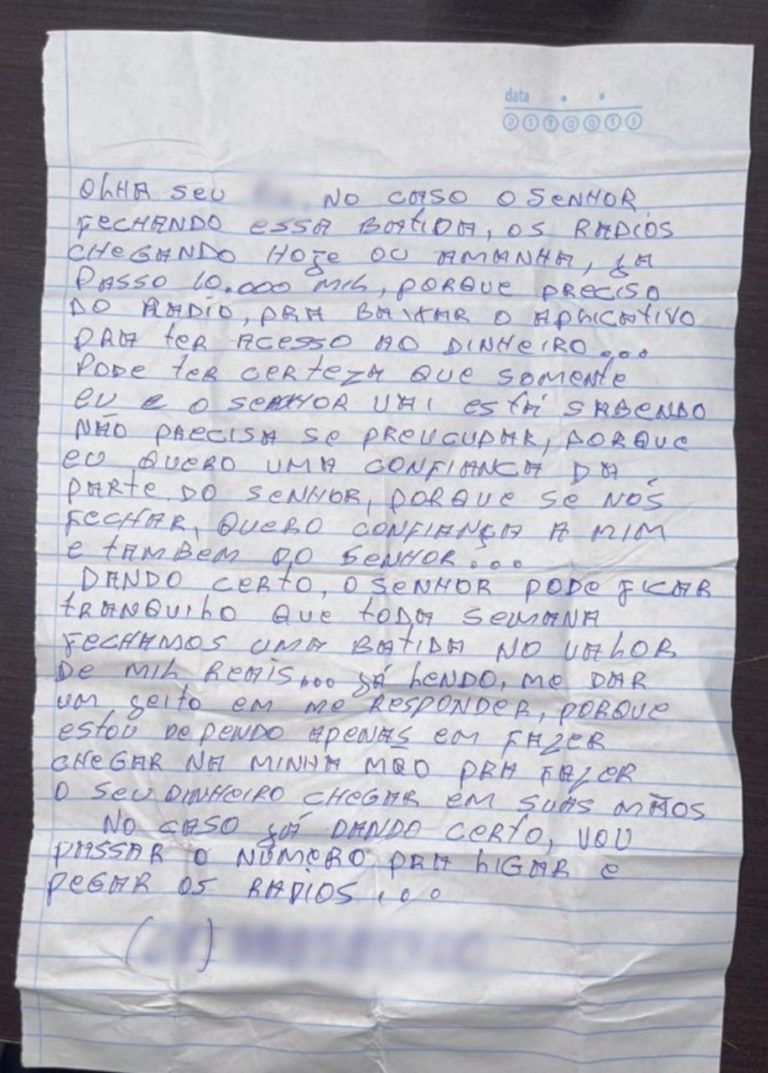 data
D S T Q Q S S
OLHA SEU NO CASO O SENHOR
FECHANDO ESSA BATIDA, OS RADIOS
CHEGANDO HOJE OU AMANHA, JA
PASSO 10.000 MIL, PORQUE PRECISO
DO RADIO, PRA BAIXAR O APLICATIVO
PRA TER ACESSO AO DINHEIRO...
PODE TER CERTEZA QUE SOMENTE
EU E O SENHOR VAI ESTÁ SABENDO
NÃO PRECISA SE PREUCUPAR, PORQUE
EU QUERO UMA CONFIANCA DA
PARTE DO SENHOR, PORQUE SE NÓS
FECHAR, QUERO CONFIANÇA A MIM
E TAMBEM DO SENHOR...
DANDO CERTO, O SENHOR PODE FICAR
TRANQUILO QUE TODA SEMANA
FECHAMOS UMA BATIDA NO VALOR
DE MIL REAIS... JÁ LENDO, ME DAR
UM JEITO EM ME RESPONDER, PORQUE
ESTOU DEPENDO APENAS EM FAZER
CHEGAR NA MINHA MÃO PRA FAZER
O SEU DINHEIRO CHEGAR EM SUAS MÃOS
NO CASO JÁ DANDO CERTO, VOU
PASSAR O NÚMERO PRA LIGAR E
PEGAR OS RADIOS...